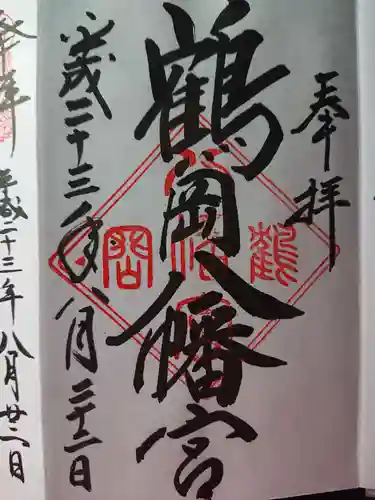 奉拝
鶴岡八幡宮
平成二十三年八月二十二日
奉拝
平成二十三年八月廿二日